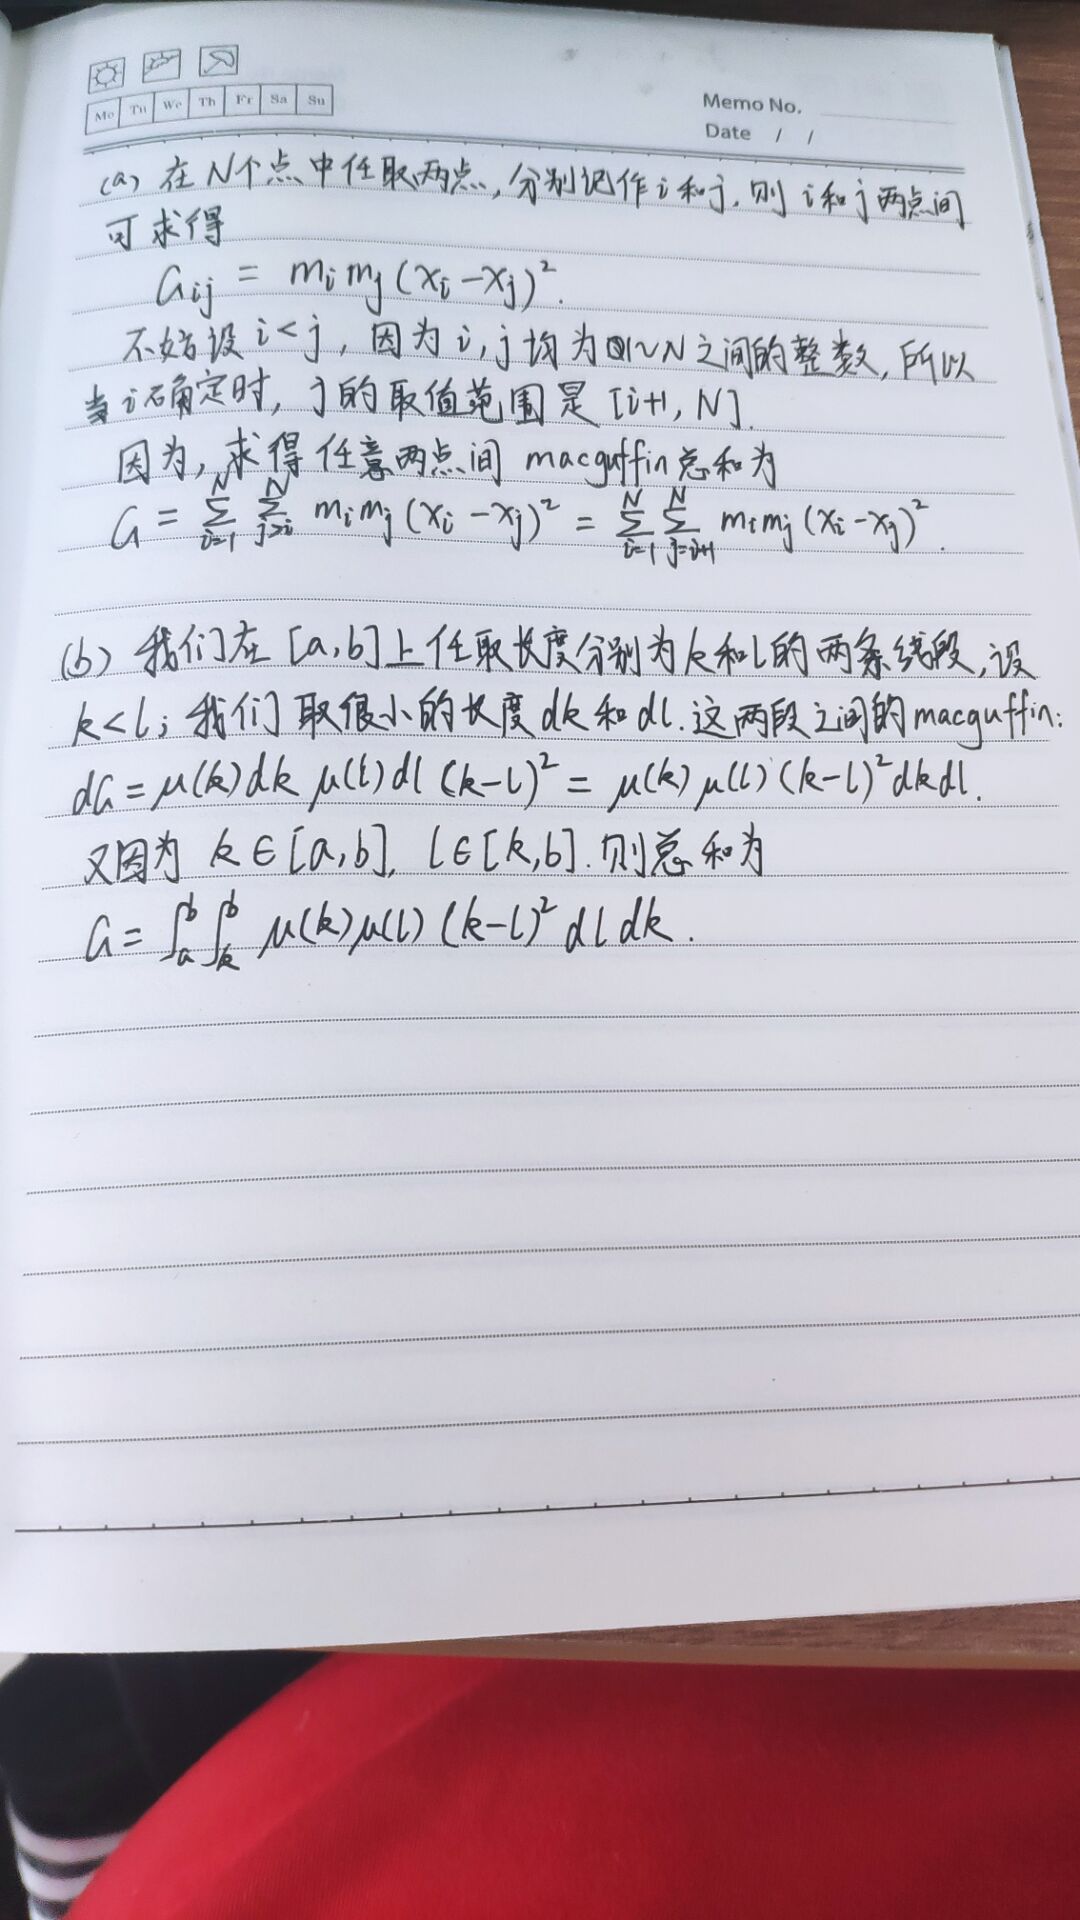 Mo Tu We Th Fr Sa Su
Memo No.
Date / /
(a) 在N个点中任取两点,分别记作i和j,则i和j两点间
可求得
Gij = mi mj (xi-xj)².
不妨设i<j,因为i,j均为1~N之间的整数,所以
当i确定时,j的取值范围是[i+1,N].
因为,求得任意两点间macguffin总和为
G = Σ_{i=1}^{N} Σ_{j>i}^{N} mi mj (xi-xj)² = Σ_{i=1}^{N} Σ_{j=i+1}^{N} mi mj (xi-xj)².
(b) 我们在[a,b]上任取长度分别为k和l的两条线段,设
k<l;我们取很小的长度dk和dl.这两段之间的macguffin:
dG = μ(k)dk μ(l)dl (k-l)² = μ(k)μ(l)(k-l)²dkdl.
又因为 k∈[a,b], l∈[k,b].则总和为
G = ∫_a^b ∫_k^b μ(k)μ(l) (k-l)² dl dk.